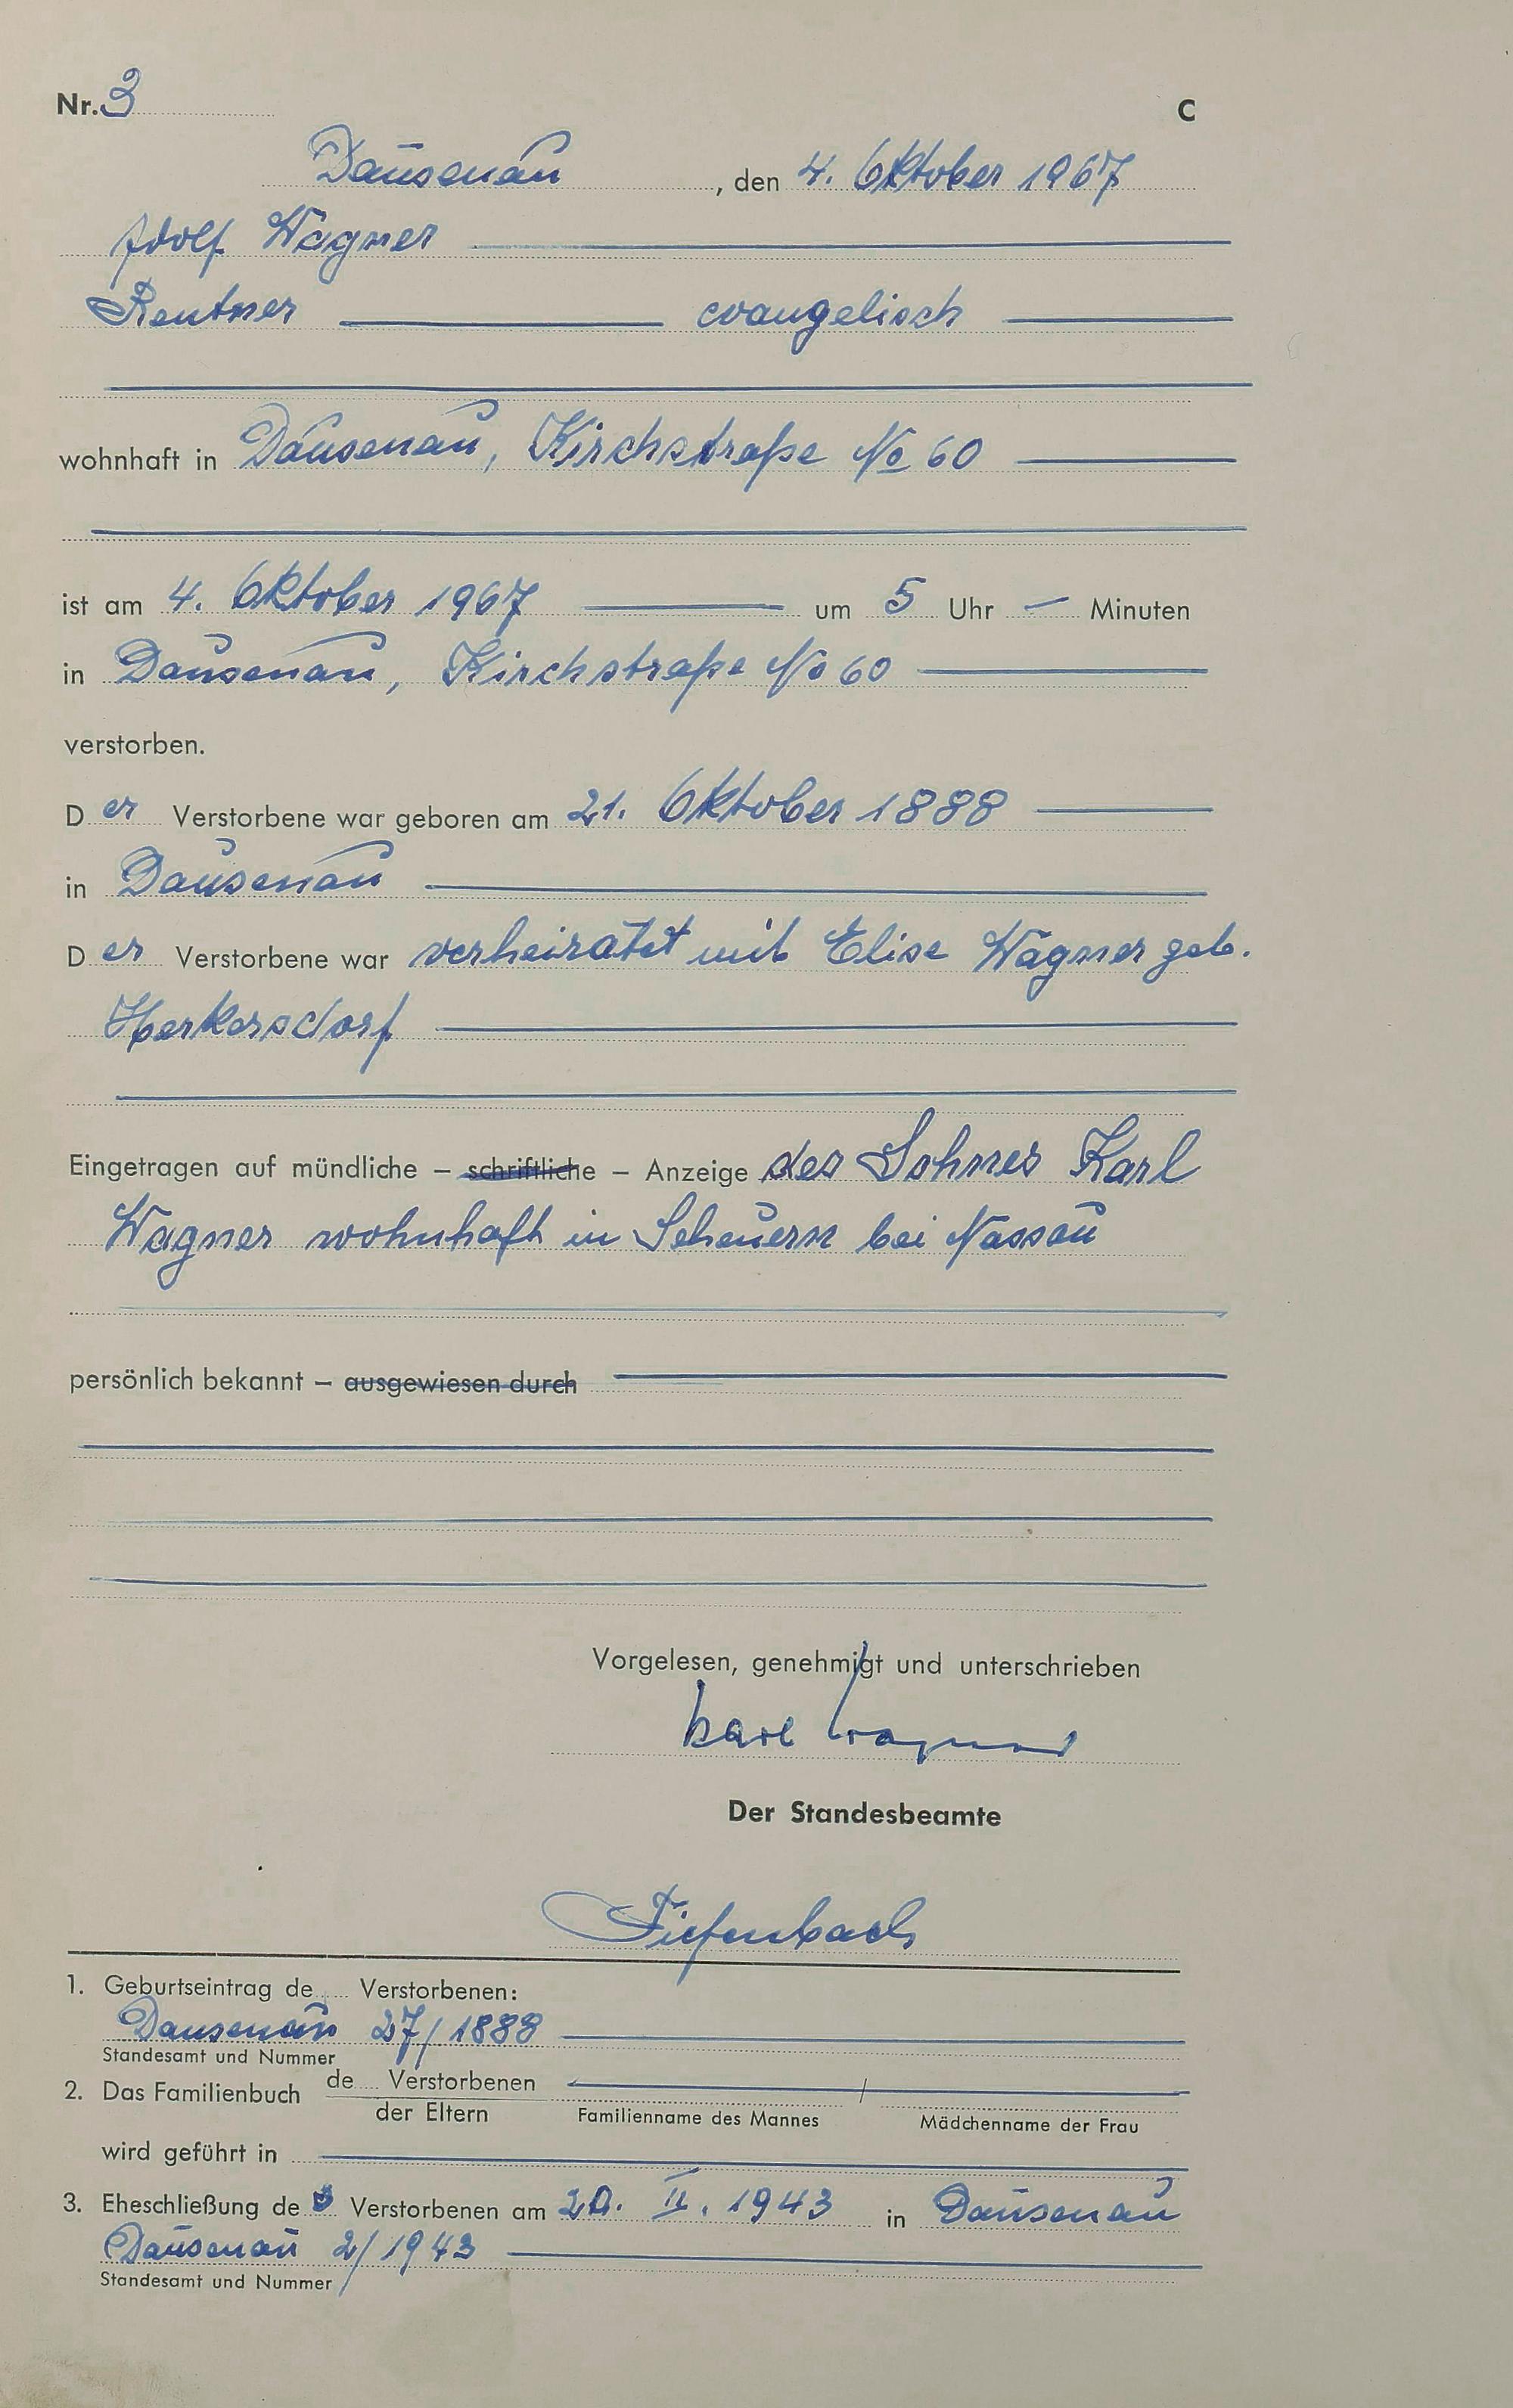 Nr. 3 C
Dausenau, den 4. Oktober 1967
Adolf Wagner
Rentner evangelisch
wohnhaft in Dausenau, Kirchstraße No 60
ist am 4. Oktober 1967 um 5 Uhr — Minuten
in Dausenau, Kirchstraße No 60
verstorben.
Der Verstorbene war geboren am 21. Oktober 1888
in Dausenau
Der Verstorbene war verheiratet mit Elise Wagner geb.
Herkersdorf
Eingetragen auf mündliche – schriftliche – Anzeige des Sohnes Karl
Wagner wohnhaft in Scheuern bei Nassau
persönlich bekannt – ausgewiesen durch
Vorgelesen, genehmigt und unterschrieben
Karl Wagner
Der Standesbeamte
Tiefenbach
1. Geburtseintrag de Verstorbenen:
Dausenau 27/1888
Standesamt und Nummer
2. Das Familienbuch de Verstorbenen /
der Eltern Familienname des Mannes Mädchenname der Frau
wird geführt in
3. Eheschließung des Verstorbenen am II. 1943 in Dausenau
Dausenau 2/1943
Standesamt und Nummer